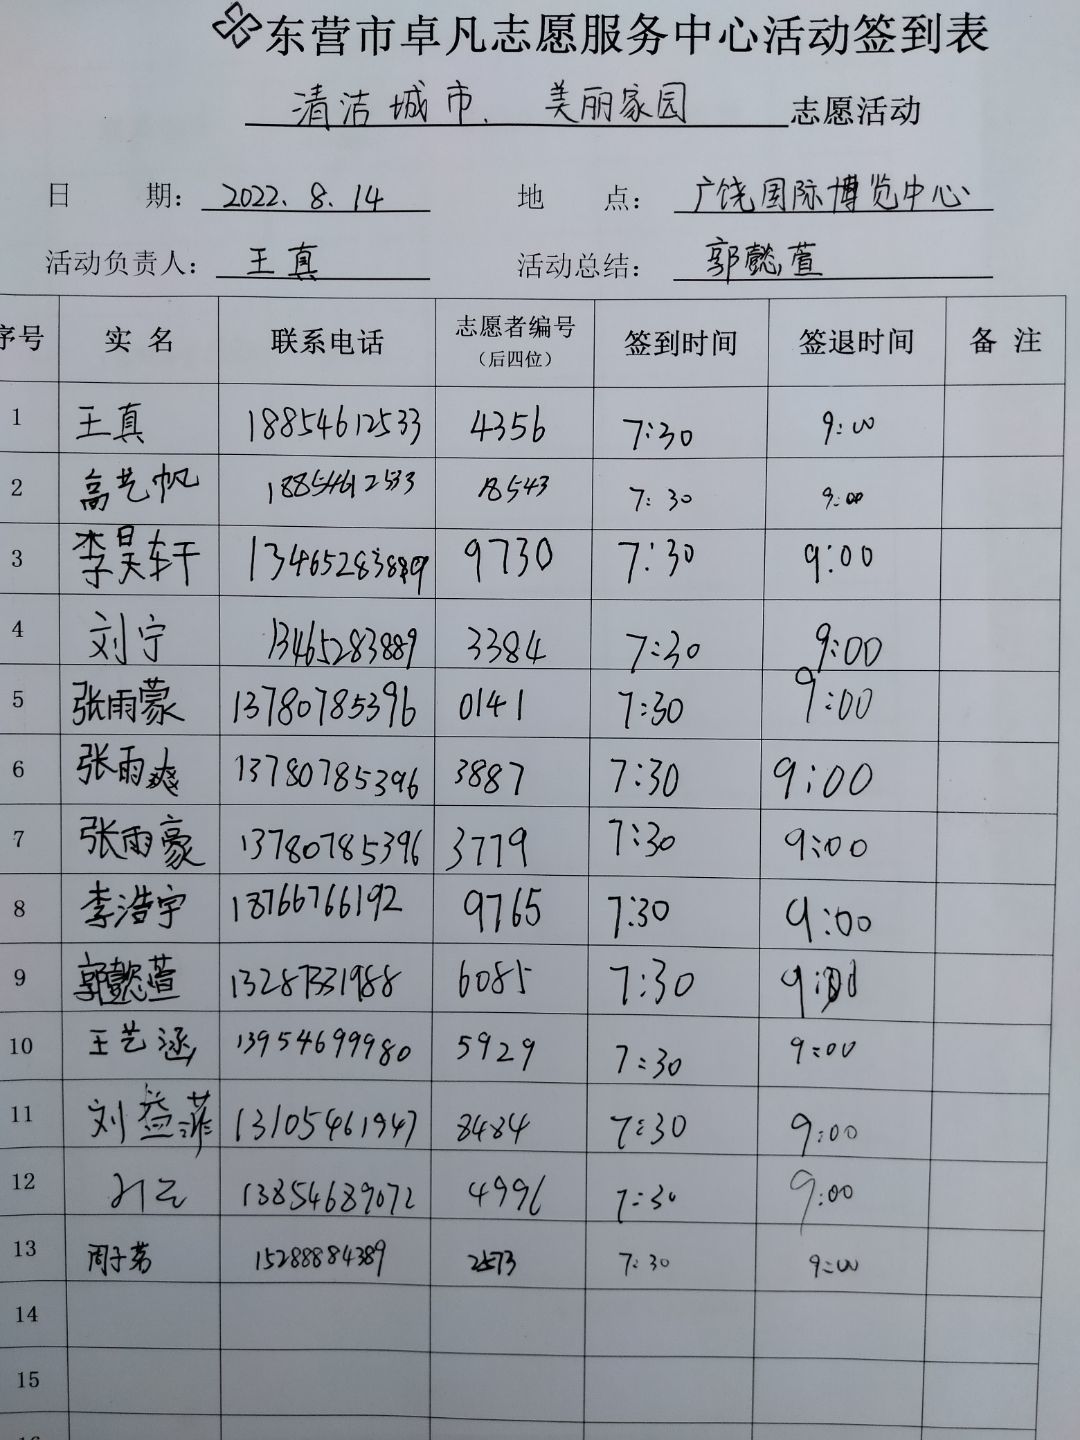 东营市卓凡志愿服务中心活动签到表
清洁城市、美丽家园 志愿活动
日 期: 2022.8.14 地 点: 广饶国际博览中心
活动负责人: 王真 活动总结: 郭懿萱
序号 实名 联系电话 志愿者编号(后四位) 签到时间 签退时间 备注
1 王真 18854612533 4356 7:30 9:00
2 高艺帆 18854612533 18543 7:30 9:00
3 李昊轩 9730 7:30 9:00
4 刘宁 13465283889 3384 7:30 9:00
5 张雨蒙 13780785396 0141 7:30 9:00
6 张雨爽 13780785396 3887 7:30 9:00
7 张雨豪 13780785396 3779 7:30 9:00
8 李浩宇 18766766192 9765 7:30 9:00
9 郭懿萱 13287331988 6085 7:30 9:00
10 王艺涵 13954699980 5929 7:30 9:00
11 刘益菲 13105461947 8484 7:30 9:00
12 13854689072 4996 7:30 9:00
13 周子 15288884389 2573 7:30 9:00
14
15